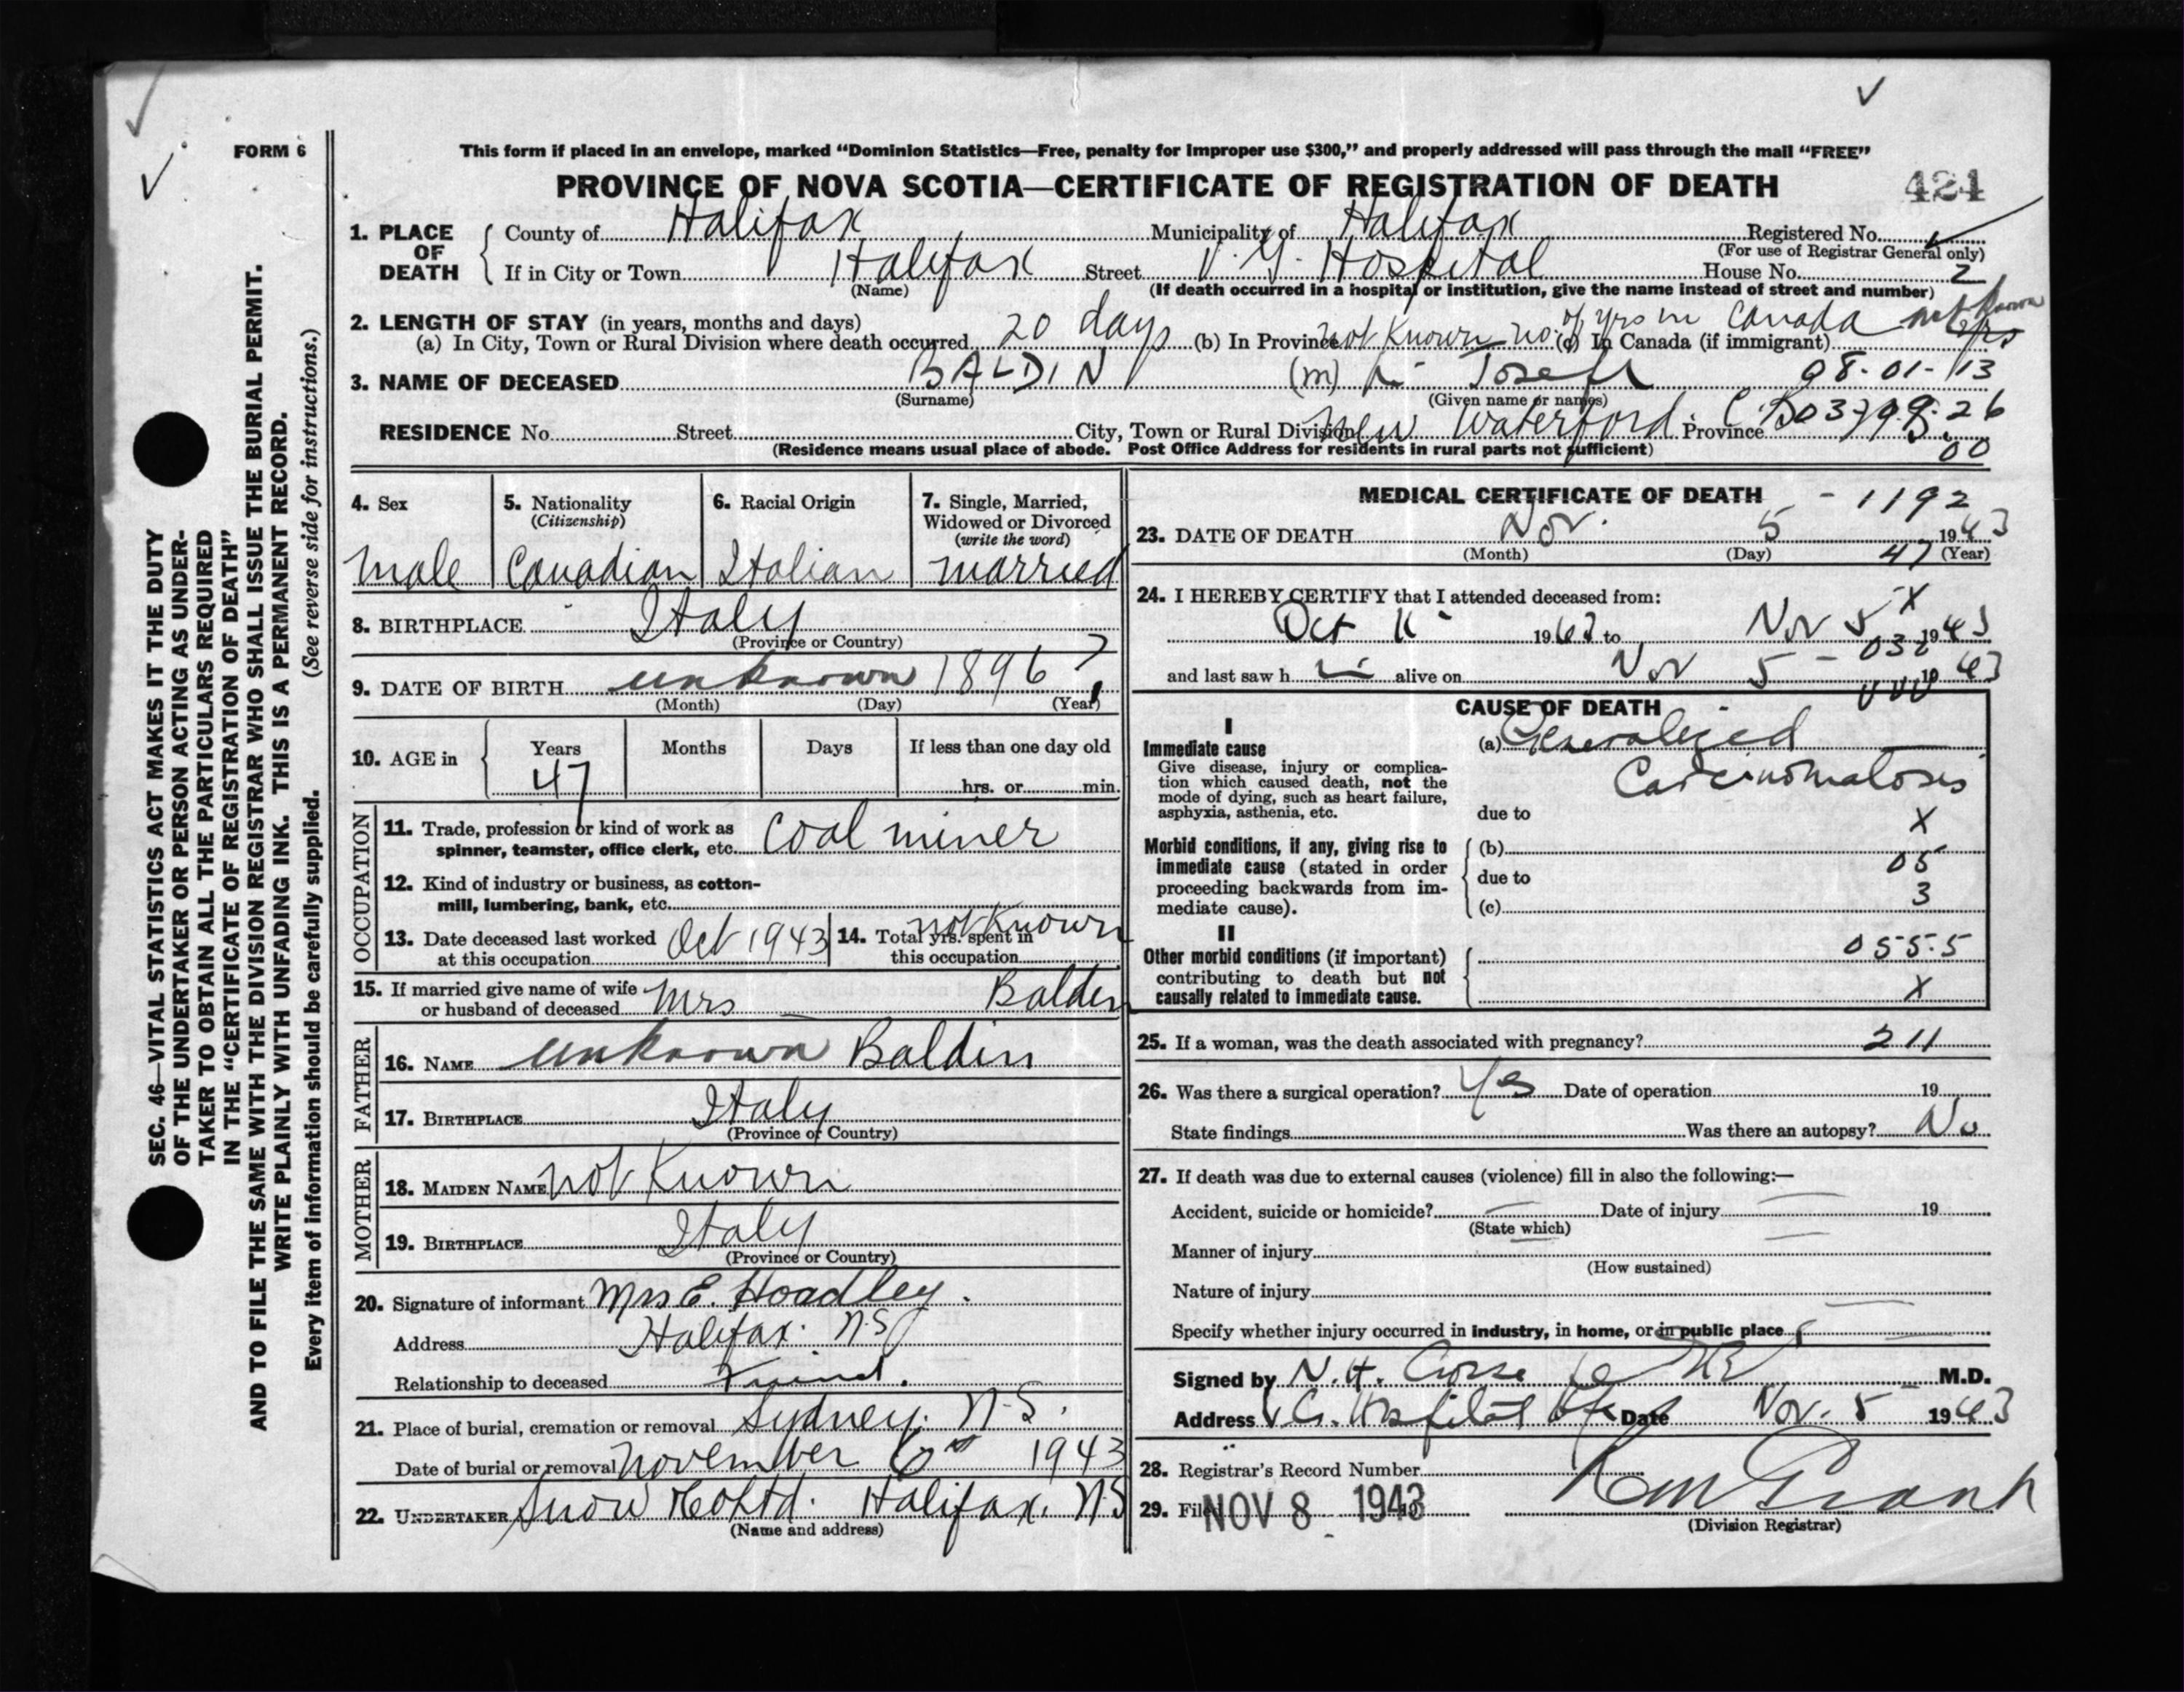 FORM 6
This form if placed in an envelope, marked "Dominion Statistics—Free, penalty for improper use $300," and properly addressed will pass through the mail "FREE"
PROVINCE OF NOVA SCOTIA—CERTIFICATE OF REGISTRATION OF DEATH 424
1. PLACE OF DEATH County of Halifax Municipality of Halifax Registered No.
(For use of Registrar General only)
If in City or Town Halifax Street V.G. Hospital House No. 2
(Name) (If death occurred in a hospital or institution, give the name instead of street and number)
2. LENGTH OF STAY (in years, months and days) of yrs in Canada not known
(a) In City, Town or Rural Division where death occurred 20 days (b) In Province not Known no. (c) In Canada (if immigrant) yrs
3. NAME OF DECEASED BALDIN (m) Joseph 98-01-13
(Surname) (Given name or names)
RESIDENCE No. Street City, Town or Rural Division New Waterford Province C.B. 03799-26
(Residence means usual place of abode. Post Office Address for residents in rural parts not sufficient) 00
4. Sex
male
5. Nationality
(Citizenship)
Canadian
6. Racial Origin
Italian
7. Single, Married, Widowed or Divorced
(write the word)
married
8. BIRTHPLACE Italy
(Province or Country)
9. DATE OF BIRTH unknown 1896 ?
(Month) (Day) (Year)
10. AGE in Years Months Days If less than one day old
47 hrs. or min.
OCCUPATION
11. Trade, profession or kind of work as
spinner, teamster, office clerk, etc. Coal miner
12. Kind of industry or business, as cotton-
mill, lumbering, bank, etc.
13. Date deceased last worked at this occupation Oct 1943
14. Total yrs. spent in this occupation not Known
15. If married give name of wife or husband of deceased Mrs — Baldin
FATHER
16. NAME unknown Baldin
17. BIRTHPLACE Italy
(Province or Country)
MOTHER
18. MAIDEN NAME not Known
19. BIRTHPLACE Italy
(Province or Country)
20. Signature of informant Mrs E. Hoadley.
Address Halifax. N.S
Relationship to deceased Friend.
21. Place of burial, cremation or removal Sydney. N.S.
Date of burial or removal November 6th 1943
22. UNDERTAKER Snow & Co Ltd. Halifax. N.S
(Name and address)
MEDICAL CERTIFICATE OF DEATH - 1192
23. DATE OF DEATH Nov. 5 1943
(Month) (Day) 47 (Year)
24. I HEREBY CERTIFY that I attended deceased from: X
Oct 1943 to Nov 5 1943
032
and last saw h alive on Nov 5 - 1943
CAUSE OF DEATH
I
Immediate cause
Give disease, injury or complica-
tion which caused death, not the
mode of dying, such as heart failure,
asphyxia, asthenia, etc.
(a) Generalized
Carcinomatosis
due to X
Morbid conditions, if any, giving rise to
immediate cause (stated in order
proceeding backwards from im-
mediate cause).
(b)
05
due to
3
(c)
II
Other morbid conditions (if important)
contributing to death but not
causally related to immediate cause.
055-5
X
25. If a woman, was the death associated with pregnancy? 211
26. Was there a surgical operation? Yes Date of operation 19
State findings Was there an autopsy? No
27. If death was due to external causes (violence) fill in also the following:—
Accident, suicide or homicide? — Date of injury — 19
(State which)
Manner of injury
(How sustained)
Nature of injury
Specify whether injury occurred in industry, in home, or in public place
Signed by N.H. M.D.
Address V.G. Hospital Date Nov. 5 1943
28. Registrar's Record Number
29. Filed NOV 8 1943
(Division Registrar)
SEC. 46—VITAL STATISTICS ACT MAKES IT THE DUTY
OF THE UNDERTAKER OR PERSON ACTING AS UNDER-
TAKER TO OBTAIN ALL THE PARTICULARS REQUIRED
IN THE "CERTIFICATE OF REGISTRATION OF DEATH"
AND TO FILE THE SAME WITH THE DIVISION REGISTRAR WHO SHALL ISSUE THE BURIAL PERMIT.
WRITE PLAINLY WITH UNFADING INK. THIS IS A PERMANENT RECORD.
Every item of information should be carefully supplied. (See reverse side for instructions.)